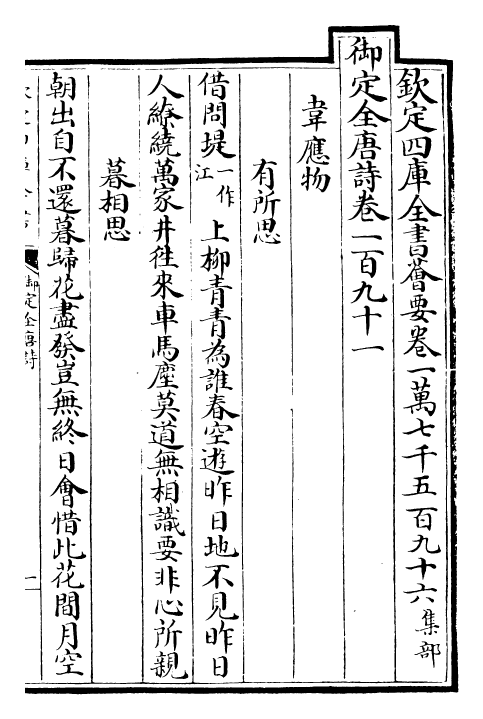 欽定四庫全書薈要卷一萬七千五百九十六集部
御定全唐詩卷一百九十一
韋應物
有所思
借問堤一作江上柳青青為誰春空遊昨日地不見昨日
人繚繞萬家井徃來車馬塵莫道無相識要非心所親
暮相思
朝出自不還暮歸花盡發豈無終日會惜此花間月空
御定全唐詩
一